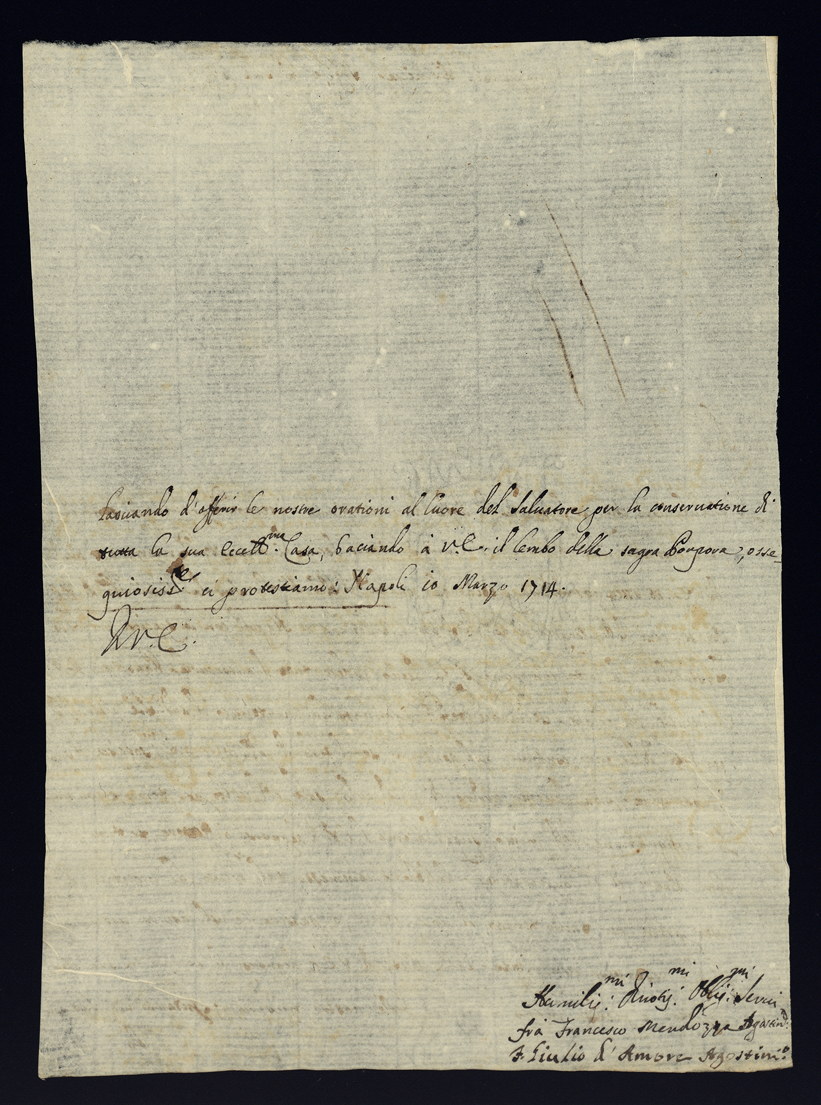 lasciando d'offerir le nostre orationi al Cuore del Salvatore per la conservatione di
tutta la sua Eccell.ma Casa, baciando à V.E. il lembo della sagra Porpora, osse-
quiosiss.e ci protestiamo: Napoli 10 Marzo 1714.
D V.E.
Humiliss.mi Divotiss.mi Oblig.mi Servi
frà Francesco Mendozza Agostin.o
F. Giulio d'Amore Agostin.o